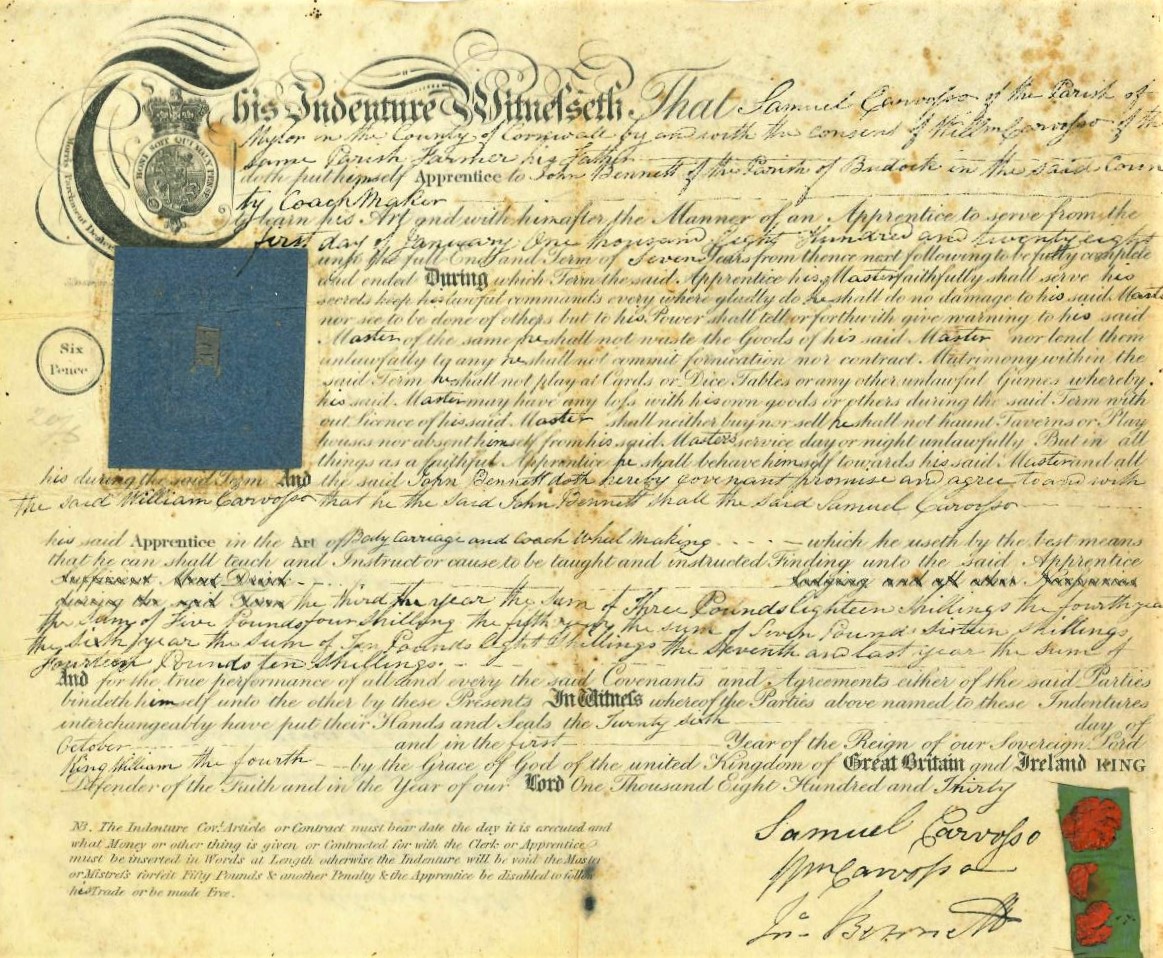 This Indenture Witnesseth That Samuel Carvosso of the Parish of
Mylor in the County of Cornwall by and with the consent of Willm Carvosso of the
same Parish Farmer his Father
doth put himself Apprentice to John Bennett of the Parish of Budock in the said Coun
ty Coach Maker
to learn his Art and with him after the Manner of an Apprentice to serve from the
first day of January One thousand Eight Hundred and twenty eight
unto the full End and Term of Seven Years from thence next following to be fully complete
and ended During which Term the said Apprentice his Master faithfully shall serve his
secrets keep his lawful commands every where gladly do he shall do no damage to his said Master
nor see to be done of others but to his Power shall tell or forthwith give warning to his said
Master of the same he shall not waste the Goods of his said Master nor lend them
unlawfully to any he shall not commit fornication nor contract Matrimony within the
said Term he shall not play at Cards or Dice Tables or any other unlawful Games whereby
his said Master may have any loss with his own goods or others during the said Term with
out Licence of his said Master shall neither buy nor sell he shall not haunt Taverns or Play
houses nor absent himself from his said Masters service day or night unlawfully But in all
things as a faithful Apprentice he shall behave himself towards his said Master and all
his during the said Term And the said John Bennett doth hereby covenant promise and agree to and with
the said William Carvosso that he the said John Bennett shall the said Samuel Carvosso
his said Apprentice in the Art of Body Carriage and Coach Wheel making which he useth by the best means
that he can shall teach and Instruct or cause to be taught and instructed Finding unto the said Apprentice
sufficient Meat Drink lodging and all other Necessaries
during the said Term the third year the sum of Three Pounds Eighteen Shillings the fourth year
the sum of Five Pounds four Shilling the fifth year the sum of Seven Pounds sixteen shillings
the sixth year the sum of Ten Pounds Eight Shillings the seventh and last year the sum of
fourteen Pounds ten shillings.
And for the true performance of all and every the said Covenants and Agreements either of the said Parties
bindeth himself unto the other by these Presents In Witness whereof the Parties above named to these Indentures
interchangeably have put their Hands and Seals the Twenty sixth day of
October and in the first Year of the Reign of our Sovereign Lord
King William the fourth by the Grace of God of the united Kingdom of Great Britain and Ireland KING
Defender of the Faith and in the Year of our Lord One Thousand Eight Hundred and Thirty
Six
Pence
HONI SOIT QUI MAL Y PENSE
NB. The Indenture Covt. Article or Contract must bear date the day it is executed and
what Money or other thing is given or Contracted for with the Clerk or Apprentice
must be inserted in Words at Length otherwise the Indenture will be void the Master
or Mistress forfeit Fifty Pounds & another Penalty & the Apprentice be disabled to follow
his Trade or be made Free.
Samuel Carvosso
Wm Carvosso
Jno Bennett